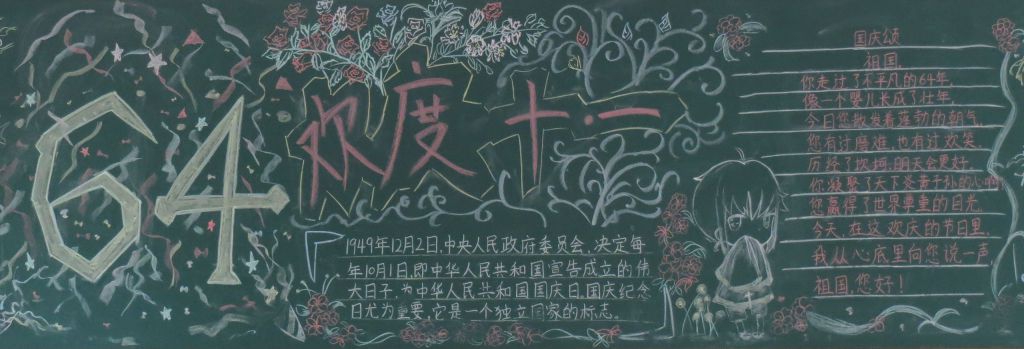 64
欢度十·一
1949年12月2日,中央人民政府委员会,决定每
年10月1日,即中华人民共和国宣告成立的伟
大日子,为中华人民共和国国庆日。国庆纪念
日尤为重要,它是一个独立国家的标志。
国庆颂
祖国,
你走过了不平凡的64年
像一个婴儿长成了壮年,
今日您散发着蓬勃的朝气
您有过磨难,也有过欢笑
历经了坎坷,明天会更好
你凝聚了天下炎黄子孙的心
您赢得了世界尊重的目光
今天,在这欢庆的节日里
我从心底里向您说一声
祖国,您好!